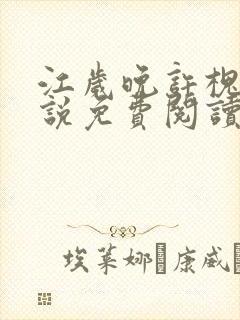 江歲晚許槐
說免費閱讀
埃萊娜·康威